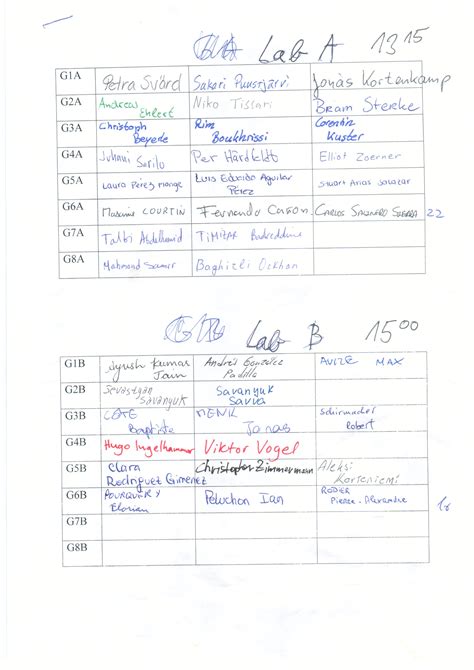 Lab A 13 15
G1A Petra Svärd Sakari Puustjärvi Jonas Kortenkamp
G2A Andreas Ehlert Niko Tissari Bram Sterke
G3A Christoph Beyede Rim Boukhrissi Corentin Kuster
G4A Juhani Sarilo Per Hardfeldt Elliot Zoerner
G5A Laura Perez Luis Eduardo Aguilar Perez Stuart Arias Salazar
G6A Maxime COURTIN Fernando CARLOS 22
G7A Talbi Abdelhamid TIMITAR Badreddine
G8A Mahmoud Samer Baghizli
Lab B 15 00
G1B Jyush Kumar Jain André González Padilla MAX
G2B Sevastyan Savanyuk Savanyuk Savva
G3B COTE Baptiste MENK Jonas Schirmacher Robert
G4B Hugo Ingelhammar Viktor Vogel
G5B Clara Rodriguez Gimenez Christopher Zimmermann Aleksi Korteniemi
G6B Florian Peluchon Ian RODIER Pierre-Alexandre
G7B
G8B